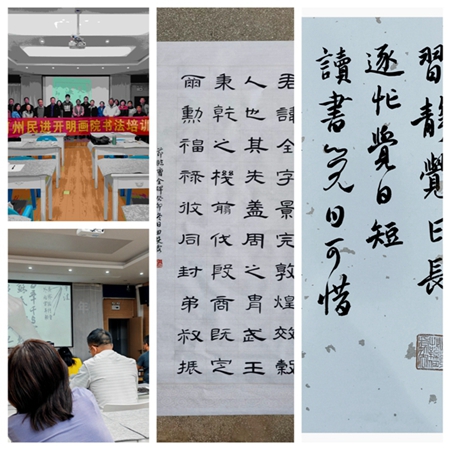 州民进开明画院书法培训
君諱全字景完敦煌效穀
人也其先蓋周之胄武王
秉乾之機翦伐殷商既定
爾勳福祿攸同封弟叔振
習靜覺日長
逐忙覺日短
讀書覺日可惜